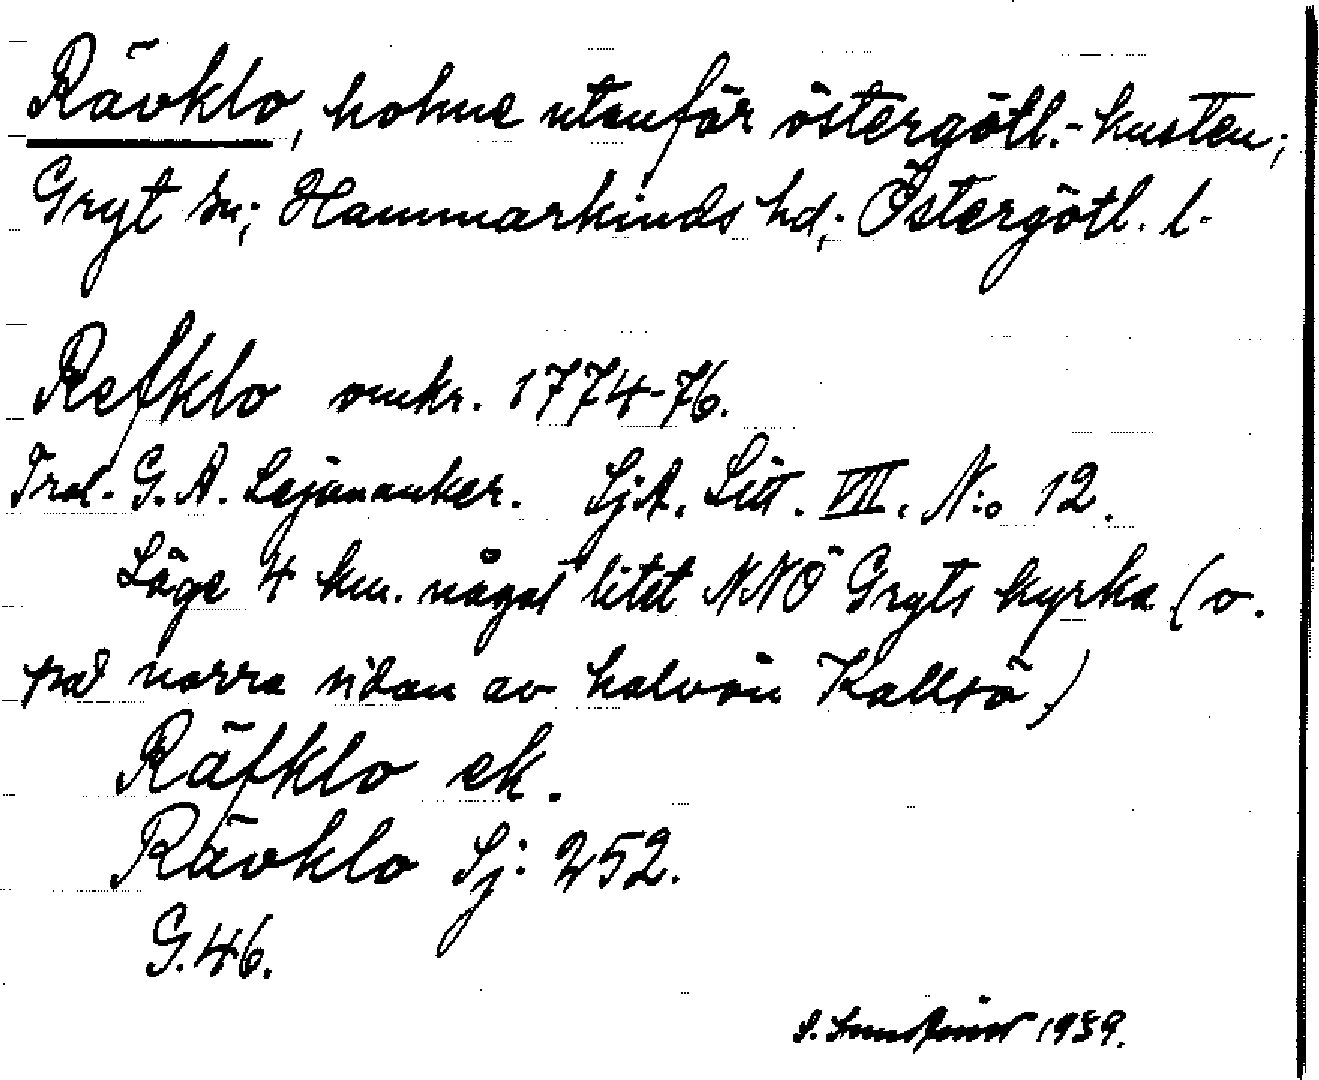 Rävklo, holme utanför östergötl.-kusten;
Gryt sn; Hammarkinds hd; Östergötl. l.
Refklo omkr. 1774-76.
Trol. G. A. Lejonanker. Sj.A. Litt. VII. N:o 12.
Läge 4 km. något litet NNÖ Gryts kyrka (o.
på norra sidan av halvön Kallsö)
Räfklo ek.
Rävklo Sj: 252.
G. 46.
S. 1939.